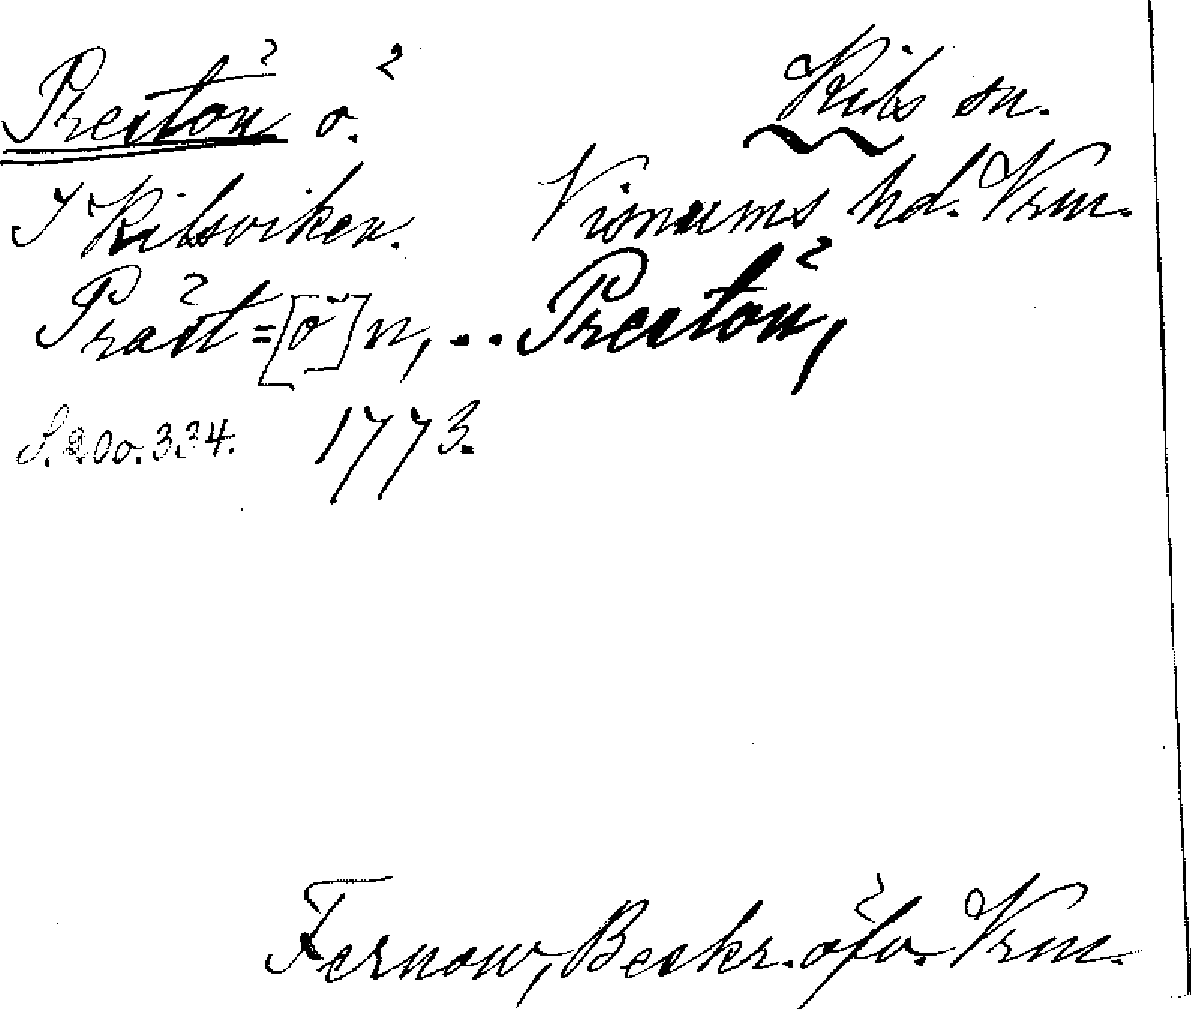 Prestön ö. Kils sn.
I Kilsviken. Visnums hd. Vrm.
Präst=[ö]n, .. Prestön,
S. 200. 334. 1773.
Fernow, Beskr. öfv. Vrm.